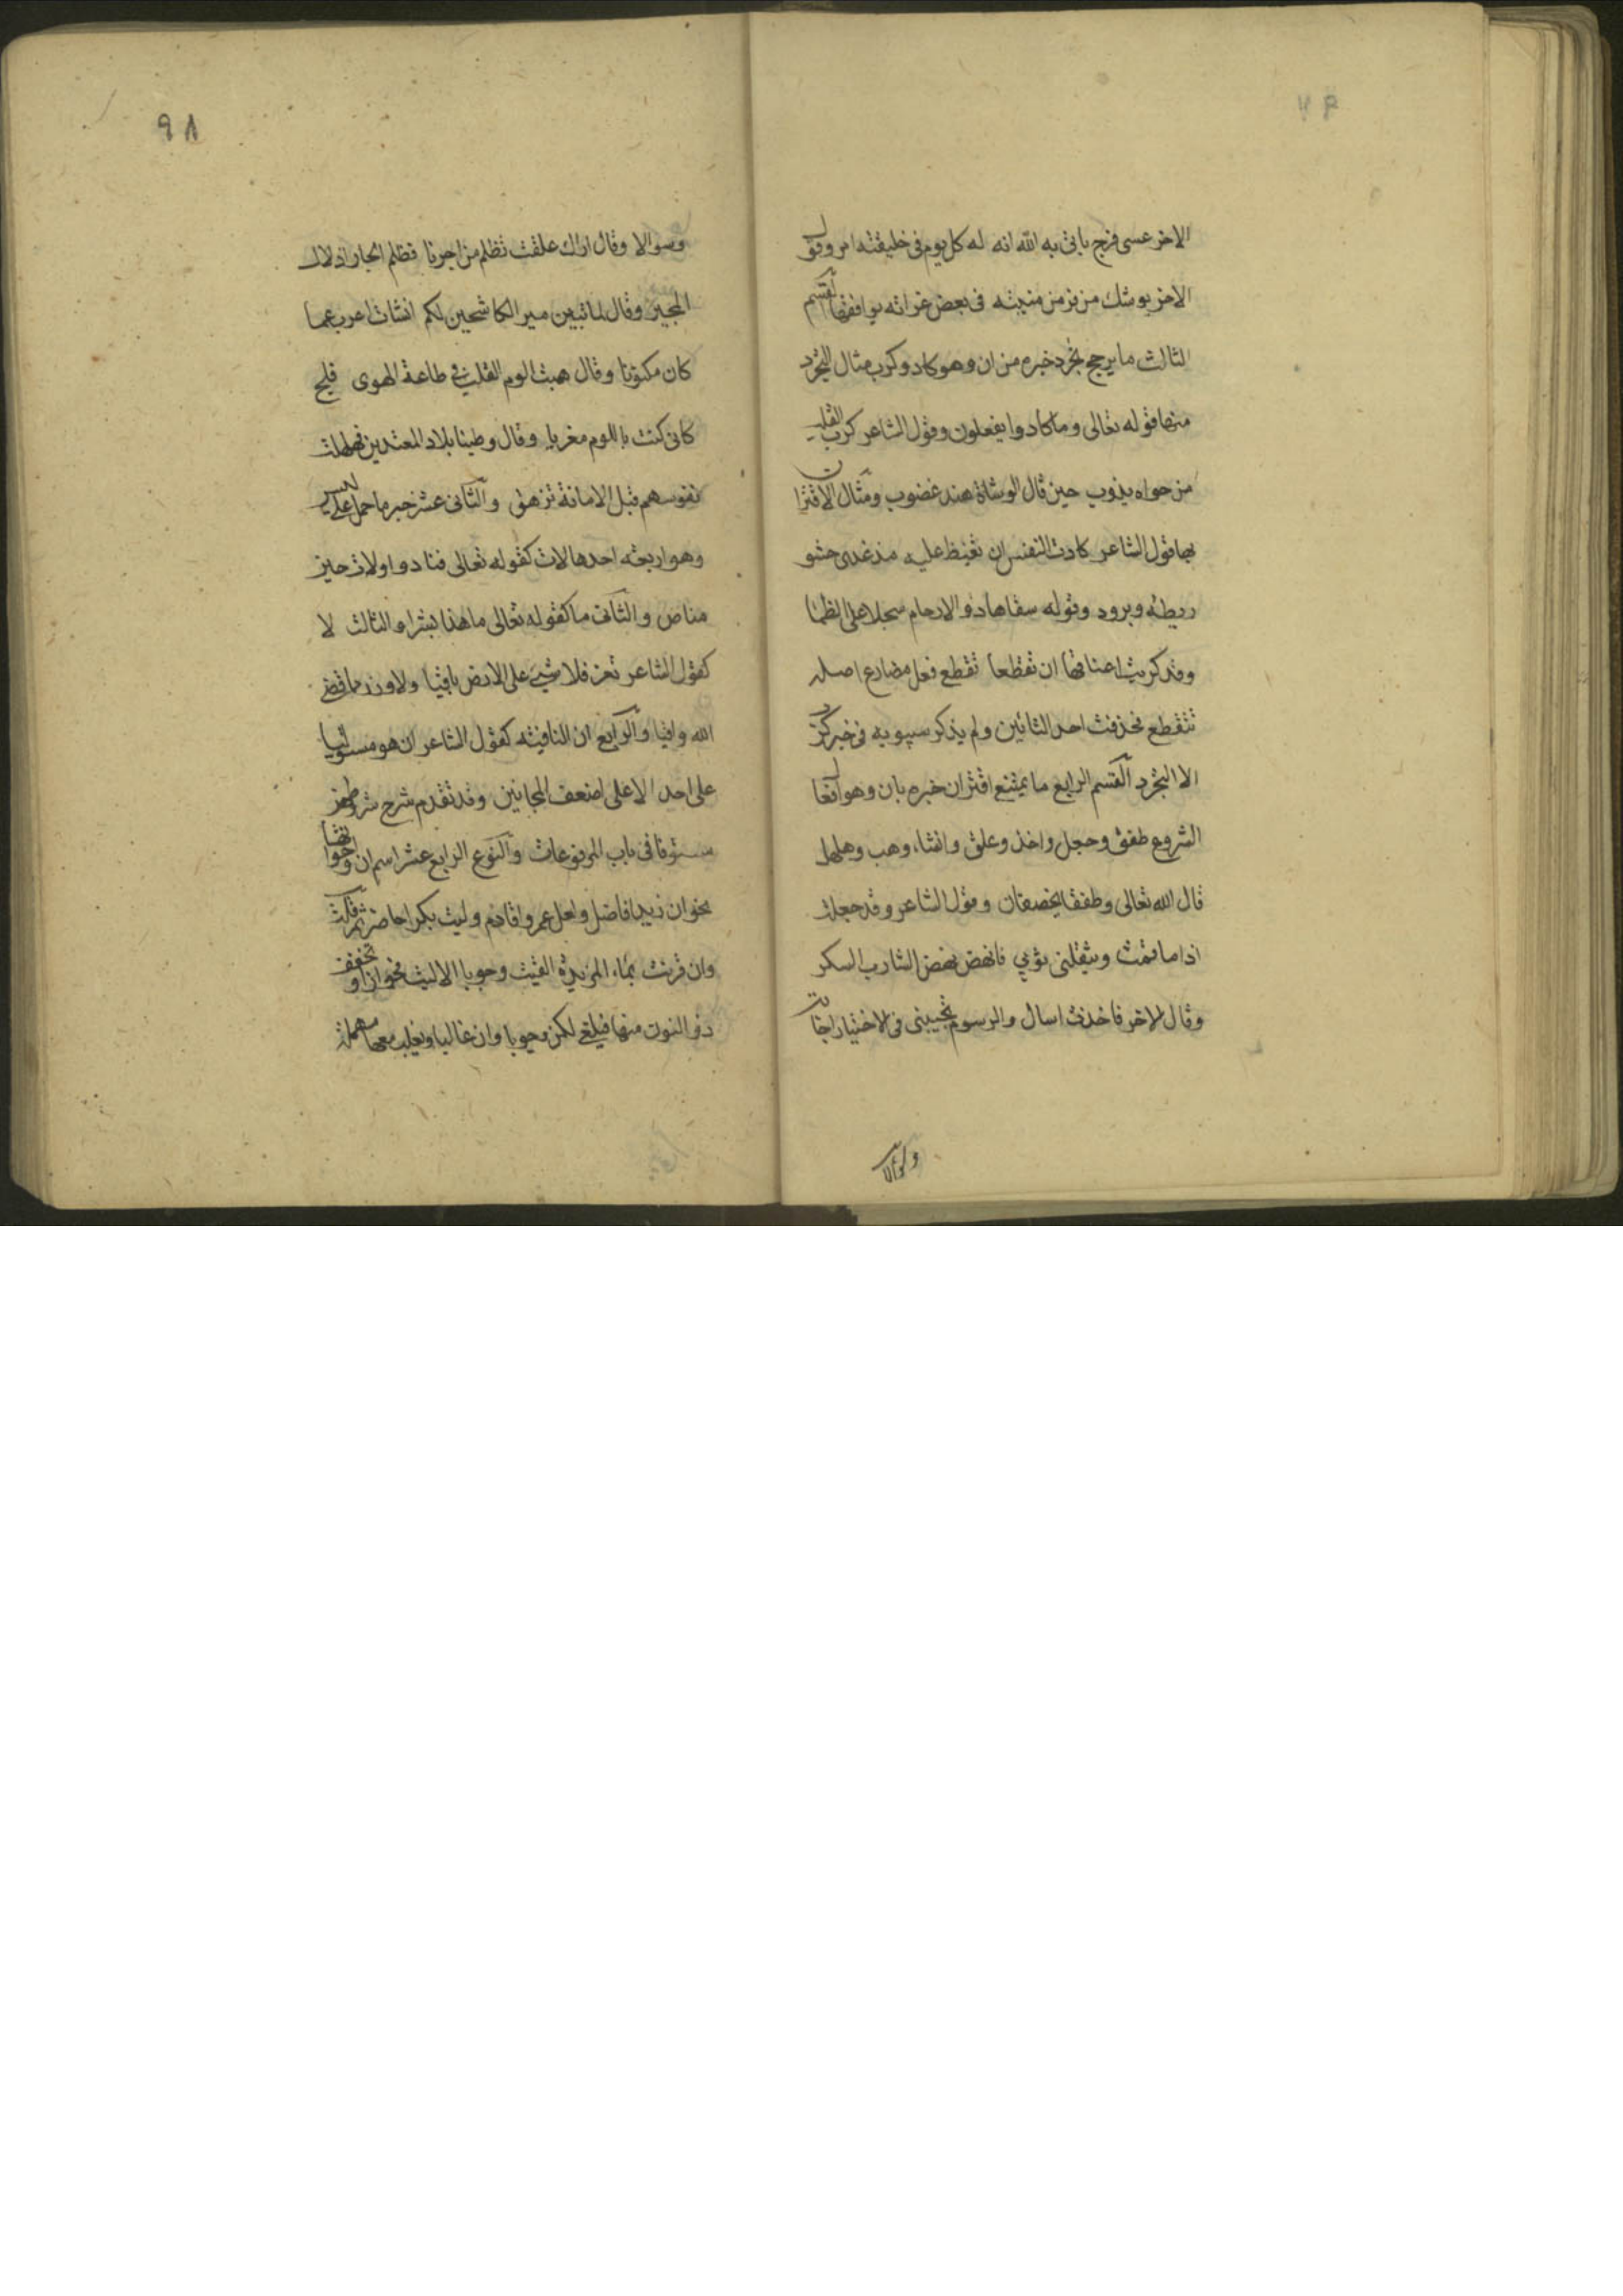 الاخر عسى فرج ياتى به الله انه له كل يوم فى خليقته امر وقول
الاخر يوشك من فر من منيته فى بعض غراته يوافقها القسم
الثالث ما يرجح تجرد خبره من ان وهو كاد وكرب مثال التجرد
منها قوله تعالى وما كادوا يفعلون وقول الشاعر كرب القلب
من جواه يذوب حين قال الوشاة هند غضوب ومثال الاقتران
بها قول الشاعر كادت النفس ان تفيظ عليه مذ غدى حشو
ريطة وبرود وقوله سقاها ذو الارحام سجلا على الظما
وقد كربت اعناقها ان تقطعا تقطع فعل مضارع اصله
تتقطع فحذفت احد التائين ولم يذكر سيبويه فى خبر كرب
الا التجرد القسم الرابع ما يمتنع اقتران خبره بان وهو افعال
الشروع طفق وجعل واخذ وعلق وانشاء وهب وهلهل
قال الله تعالى وطفقا يخصفان وقول الشاعر وقد جعلت
اذا ما قمت يثقلنى ثوبي فانهض نهض الشارب السكر
وقال الاخر فاخذت اسال والرسوم تجيبنى فى الاختيار اجابة
وسوالا
٩٨
وسوالا وقال اراك علقت تظلم من اجرنا فظلم الجار اذلال
المجير وقال لما تبين مير الكاشحين لكم انشات اعرب عما
كان مكنونا وقال هببت الوم القلب فى طاعة الهوى فلج
كانى كنت باللوم مغريا وقال وطينا بلاد المعتدين فهلهلت
نفوسهم قبل الامانة تزهق والثانى عشر خبر ما حمل على ليس
وهو اربعة احدها لات كقوله تعالى فنادوا ولات حين
مناص والثانى ما كقوله تعالى ما هذا بشرا والثالث لا
كقول الشاعر تعز فلا شيء على الارض باقيا ولا وزر مما قضى
الله واقيا والرابع ان النافية كقول الشاعر ان هو مستوليا
على احد الا على اضعف المجانين وقد تقدم شرح شروطهن
مستوفا فى باب المرفوعات والنوع الرابع عشر اسم ان واخواتها
نحو ان زيدا فاضل ولعل عمروا قادم وليت بكرا حاضر ثم قلت
وان قرنت بماء المزيدة الغيت وجوبا الا ليت فجوازا وتخفف
ذو النون منها فيلغى لكن وجوبا وان غالبا ويغلب معها مهملة